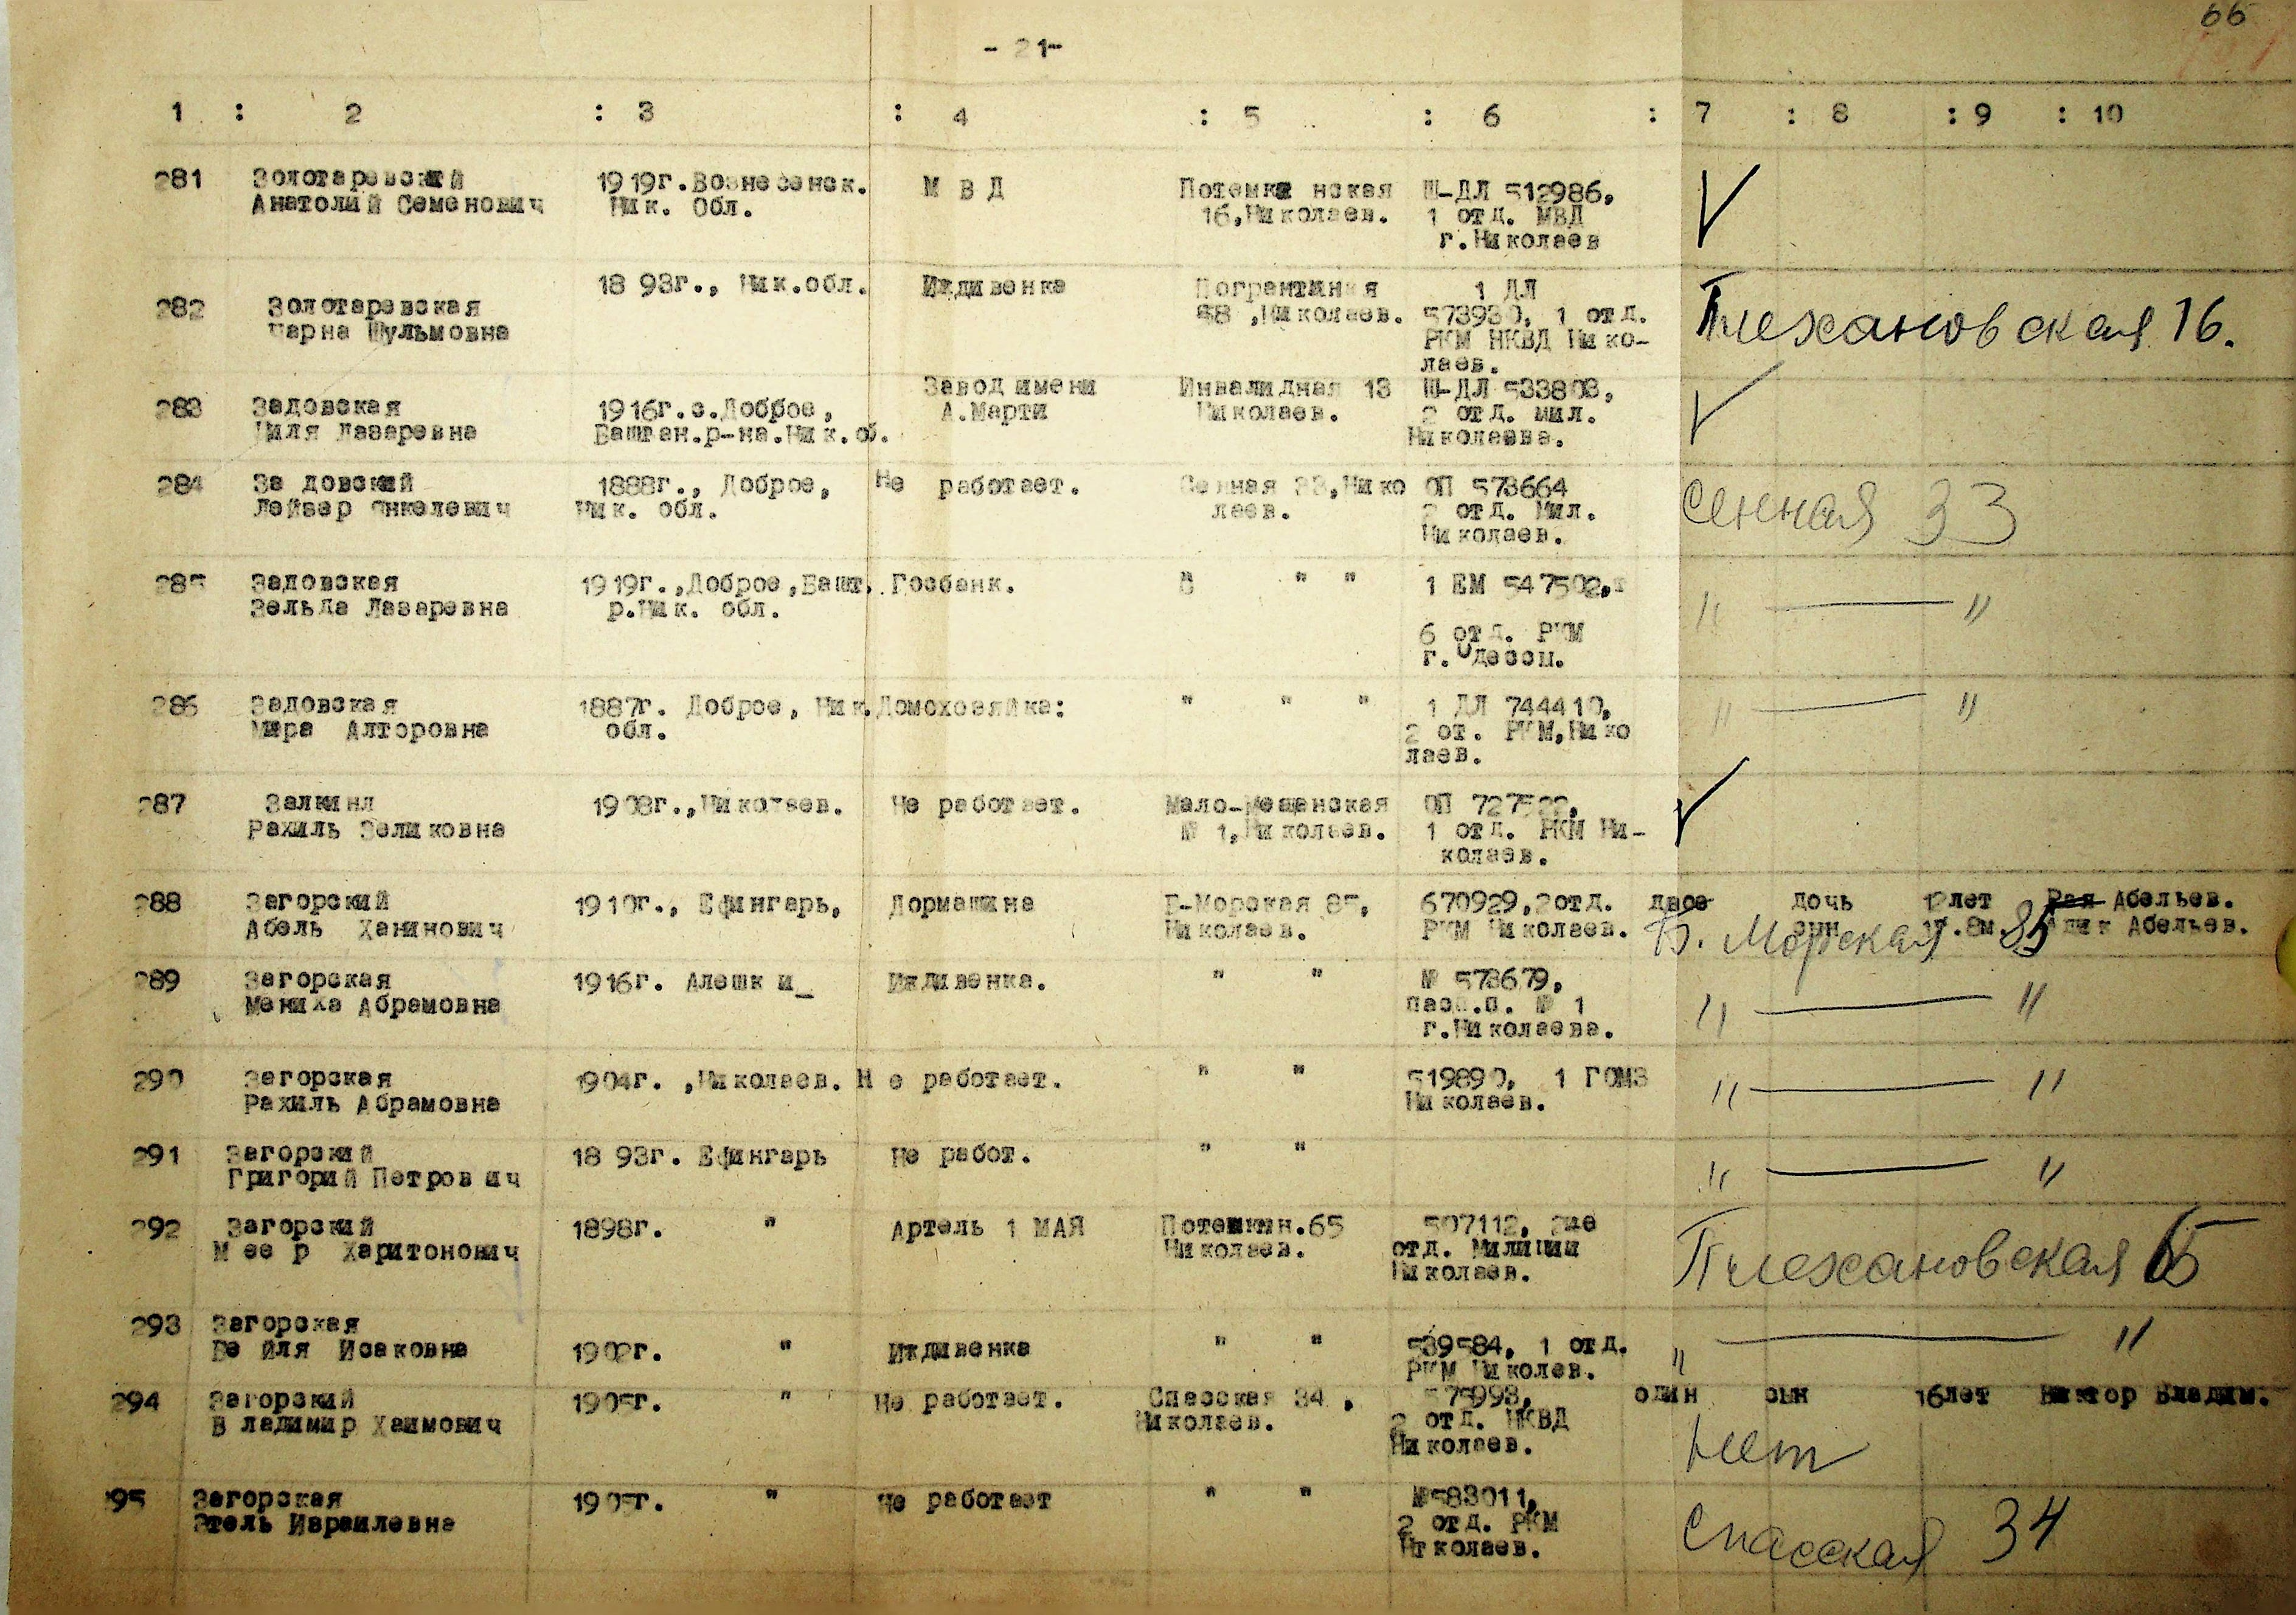 66
- 21-
1 : 2 : 3 : 4 : 5 : 6 : 7 : 8 : 9 : 10
281 Золотаревский 1919г.Вознесенск. М В Д Потемки нская Ш-ДЛ 512986,
Анатолий Семенович Ник. Обл. 16,Николаев. 1 отд. МВД
г.Николаев
18 93г., Ник.обл. Иждивенка Погранична я 1 ДЛ
282 Золотаревская 68 ,Николаев. 573930, 1 отд. Плехановская 16.
Чарна Шульмовна РКМ НКВД Нико-
лаев.
Завод имени Инвалидная 13 Ш-ДЛ 533803,
283 Задовская 1916г.с.Доброе, А.Марти Николаев. 2 отд. мил.
Циля Лазаревна Баштан.р-на.Ник.об. Николаева.
284 За довский 1888г., Доброе, Не работает. Сенная 33,Нико ОП 573664 Сенная 33
Лейзер Янкелевич Ник. обл. лаев. 2 отд. Мил.
Николаев.
285 Задовская 1919г.,Доброе,Башт. Госбанк. " " " 1 ЕМ 547502,г " — "
Зельда Лазаревна р.Ник. обл.
6 отд. РКМ
г.Одессы.
286 Задовская 1887г. Доброе, Ник.Домохозяйка: " " " 1 ДЛ 744410, " — "
Мира Алторовна обл. 2 от. РКМ,Нико
лаев.
287 Залкинд 1908г.,Николаев. Не работает. Мало-Мещанская ОП 727522,
Рахиль Зеликовна № 1,Николаев. 1 отд. РКМ Ни-
колаев.
288 Загорский 1910г., Ефингарь, Дормашина Б-Морская 85, 670929,2отд. двое дочь 12лет Рая Абельев.
Абель Ханинович Николаев. РКМ Николаев. сын 1г.8м. Адик Абельев.
Б. Морская 85
289 Загорская 1916г. Алешк и_ Иждивенка. " " № 573679, " — "
Мениха Абрамовна пасп.п. № 1
г.Николаева.
290 Загорская 1904г. ,Николаев. Н е работает. " " 519890, 1 ГОМЗ " — "
Рахиль Абрамовна Николаев.
291 Загорский 18 93г. Ефингарь Не работ. " " " — "
Григорий Петров ич
292 Загорский 1898г. " Артель 1 МАЯ Потемкин.65 507112, 2ое Плехановская 65
М ее р Харитонович Николаев. отд. Милиции
Николаев.
293 Загорская
Бе йля Исаковна 1902г. " Иждивенка " " 539584, 1 отд. " — "
РКМ Николев.
294 Загорский 1905г. " Не работает. Спасская 34 , 575993, один сын 16лет Виктор Владим.
В ладимир Хаимович Николаев. 2 отд. НКВД
Николаев. нет
295 Загорская 1905г. " Не работает " " №583011, Спасская 34
Этель Израилевна 2 отд. РКМ
Николаев.